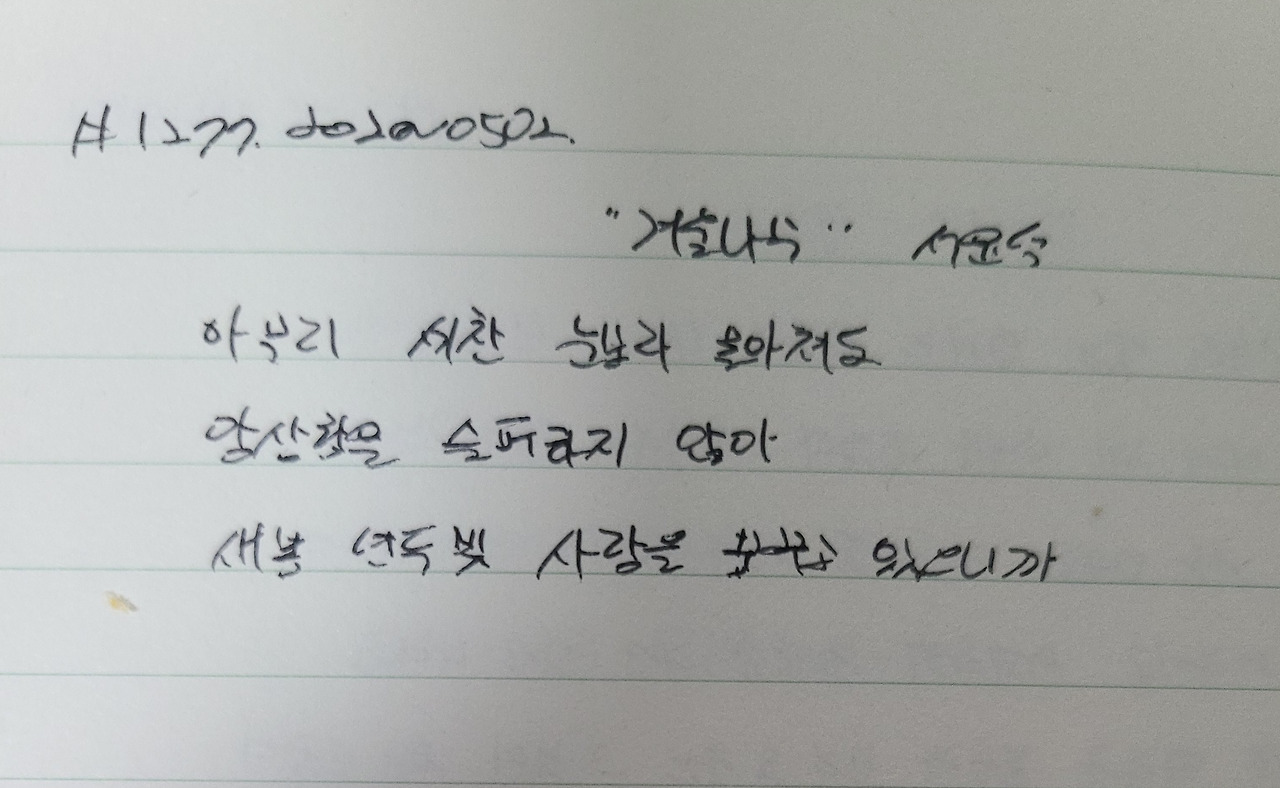 #1277. dolan0502.
"겨울나무" 서윤석
아무리 세찬 눈보라 몰아쳐도
앙상함을 슬퍼하지 않아
새봄 연두빛 사랑을 꿈꾸고 있으니까